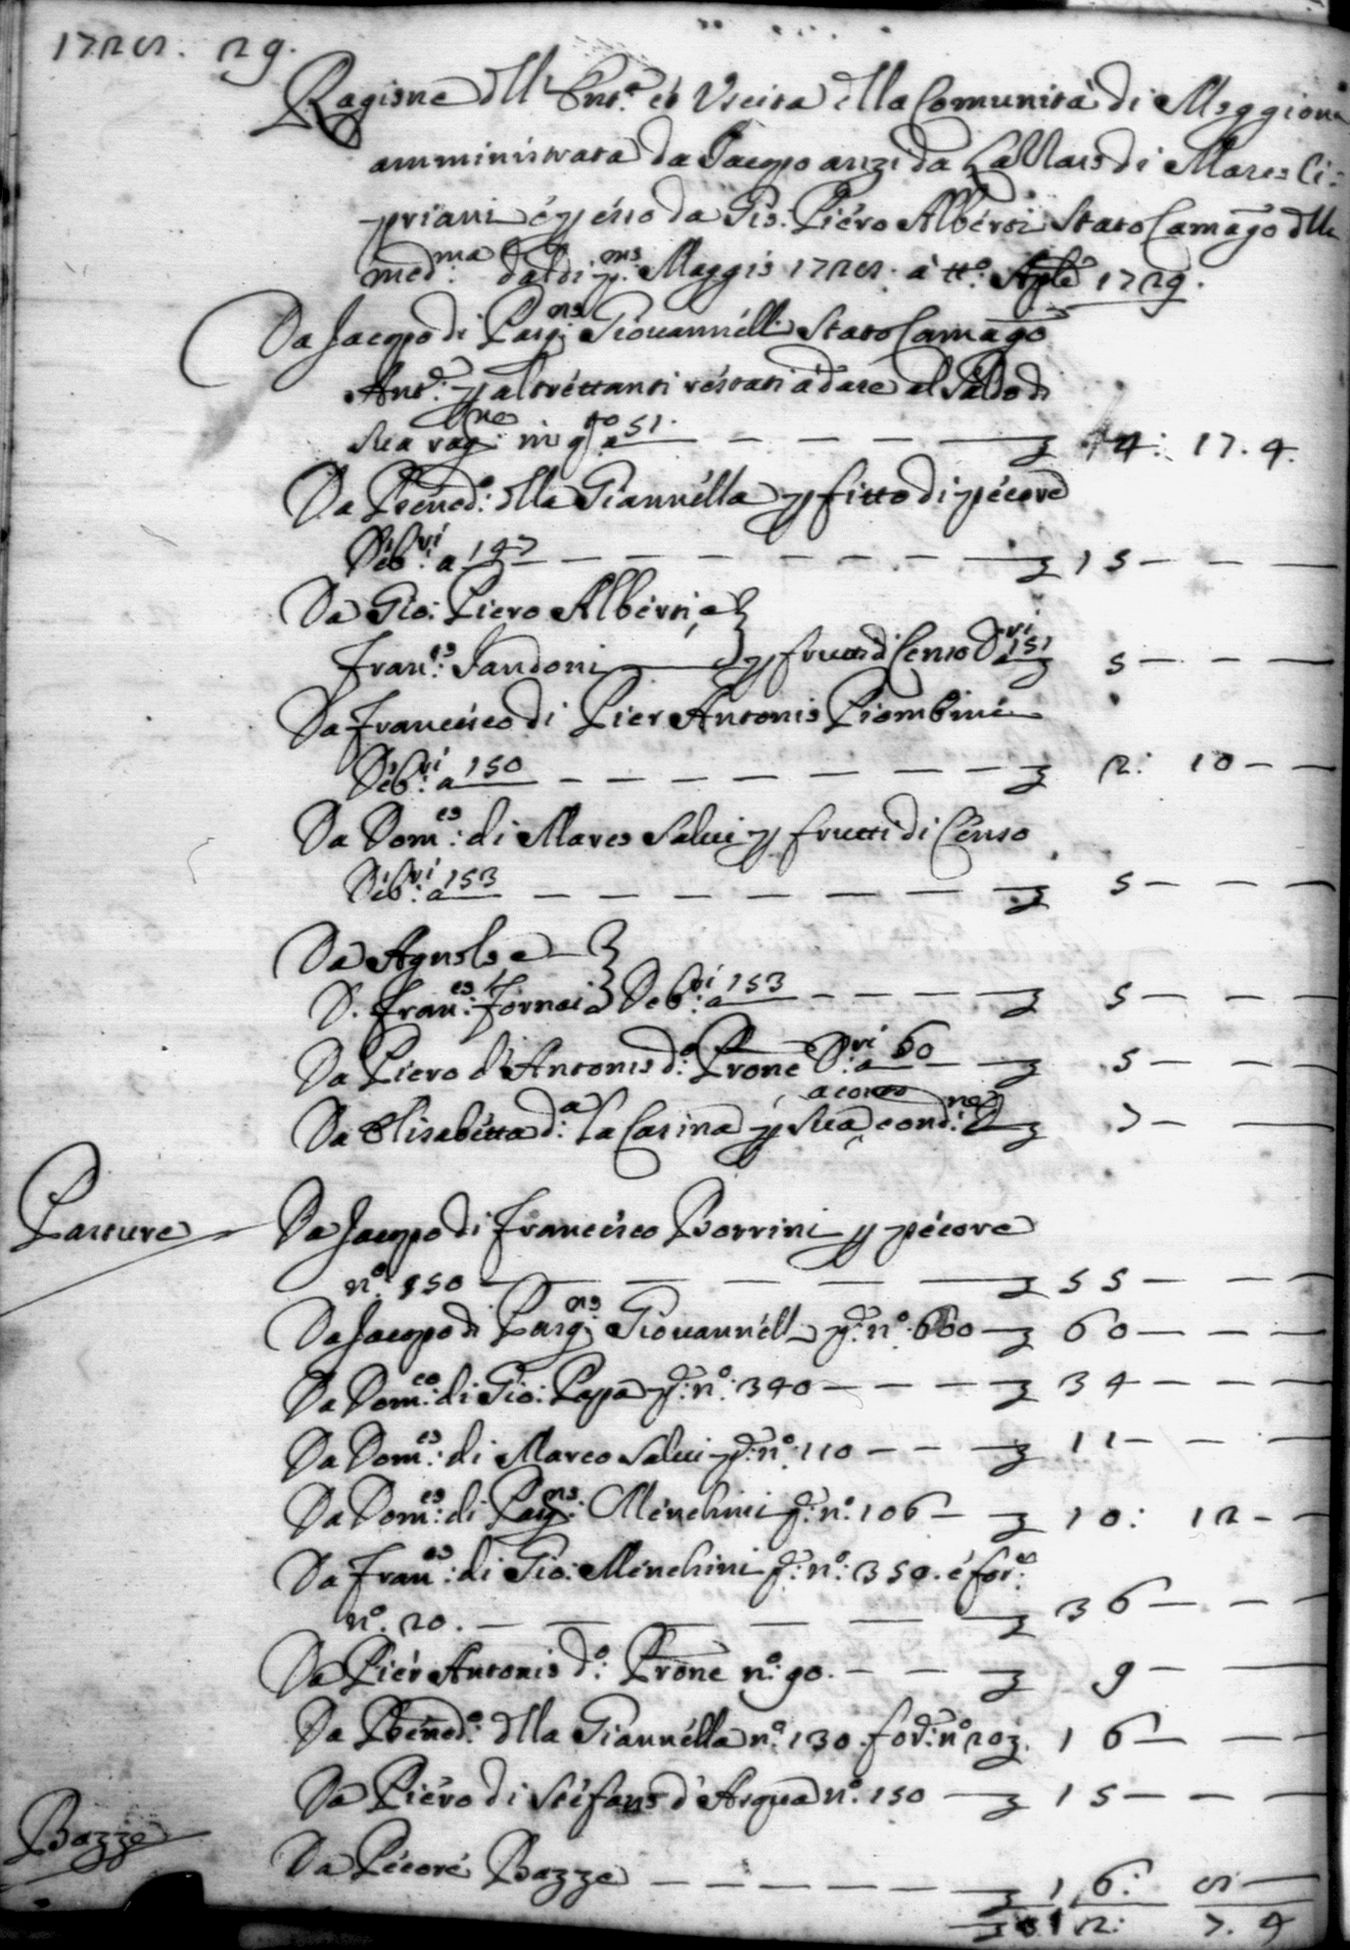 1728. 29.
Ragione dll Ent.a et Uscita dlla Comunità di Moggiona
amministrata da Jacopo anzi da di Marco Ci-
priani é per ésso da Gio: Piéro Albérti Stato Camago dlla
med:ma dal di p:mo Maggio 1728. à tt.o Aple 1729.
Da Jacopo di Pasq:no Giouannélli Stato Camago
Ant.e p altréttanti réstati à dare al Saldo di
sua rag:ne in q:to a 51. — — — — 14: 17. 4.
Da Bened:o dlla Giannélla p fitto di pécore
Déb:vi a 147 — — — — — — — 15 — — —
Da Gio: Piero Albérti, e
Fran:co Jandoni — p frutti di Censo D:vi a 151 5 — — —
Da Francésco di Pier Antonio Piombini
Déb:vi a 150 — — — — — — — 2: 10 — —
Da Dom:co di Marco Salui p frutti di Cénso
Déb:vi a 153 — — — — — — — 5 — — —
Da Agnolo e
D. Fran:co Fornai Deb:vi a 153 — — — — 5 — — —
Da Piero d'Antonio d:o Prone D:vi a 60 — — 5 — — —
a conto
Da Elisabétta d:a la Casina p sua cond:ne 7 — — —
Pasture
Da Jacopo di Francésco Borrini p pécore
n.o 550 — — — — — 55 — — —
Da Jacopo di Pasq:no Giouannélli p: n.o 600 — 60 — — —
Da Dom:co di Gio: Papa p: n.o 340 — — — 34 — — —
Da Dom:co di Marco Salui p: n.o 110 — — — 11 — — —
Da Dom:co di Pasq:no Ménchini p: n.o 106 — — 10: 12 — —
Da Fran:co di Gio: Ménchini p: n.o 350. é for:e
n.o 20. — — — — — 36 — — —
Da Piér Antonio d:o Prone n.o 90. — — — 9 — —
Da Bened:o dlla Giannélla n.o 130. for: n.o 20 16 — — —
Da Piéro di Stéfano d'Asqua n.o 150 — — 15 — — —
Bazze
Da Pécoré Bazze — — — — — — 16: 8 —
312: 7. 4